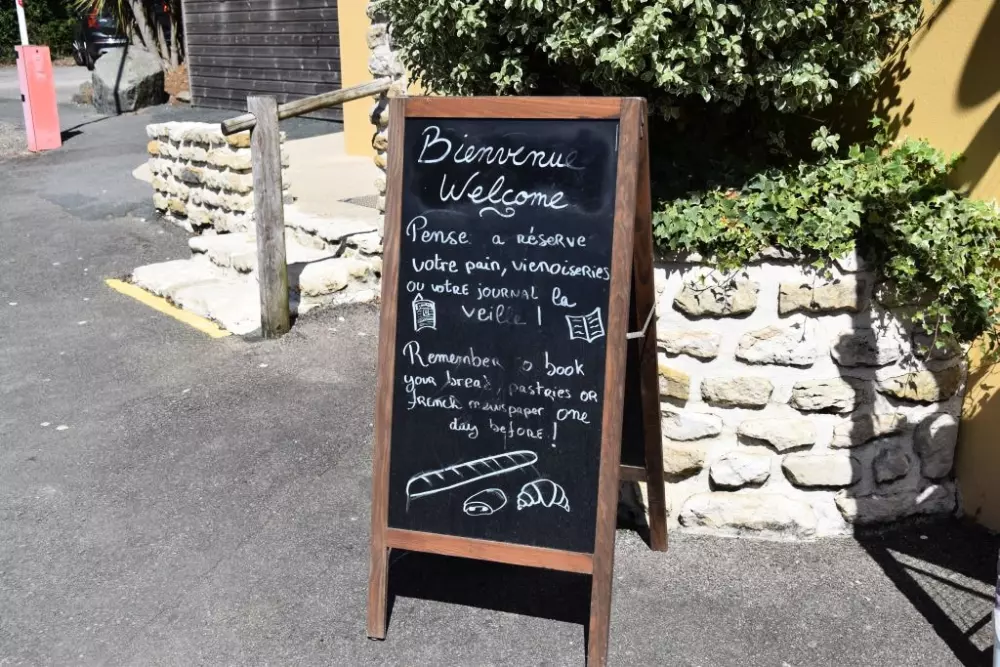 Bienvenue
Welcome
Pense a réserve
votre pain, vienoiseries
ou votre journal la
veille !
Remember o book
your bread, pastries or
French newspaper one
day before !